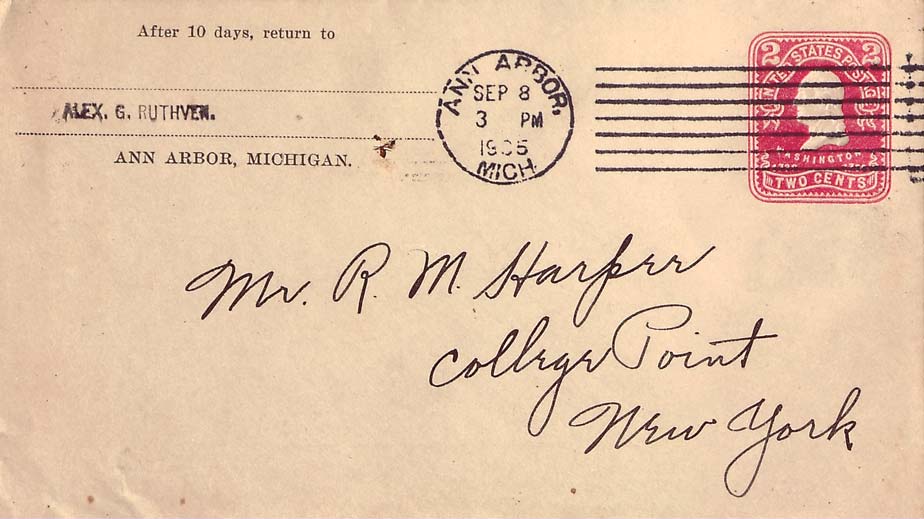 After 10 days, return to
ALEX. G. RUTHVEN.
ANN ARBOR, MICHIGAN.
ANN ARBOR,
SEP 8
3 PM
1905
MICH
2 2
UNITED STATES POSTAGE
WASHINGTON
TWO CENTS
Mr. R. M. Harper
College Point
New York